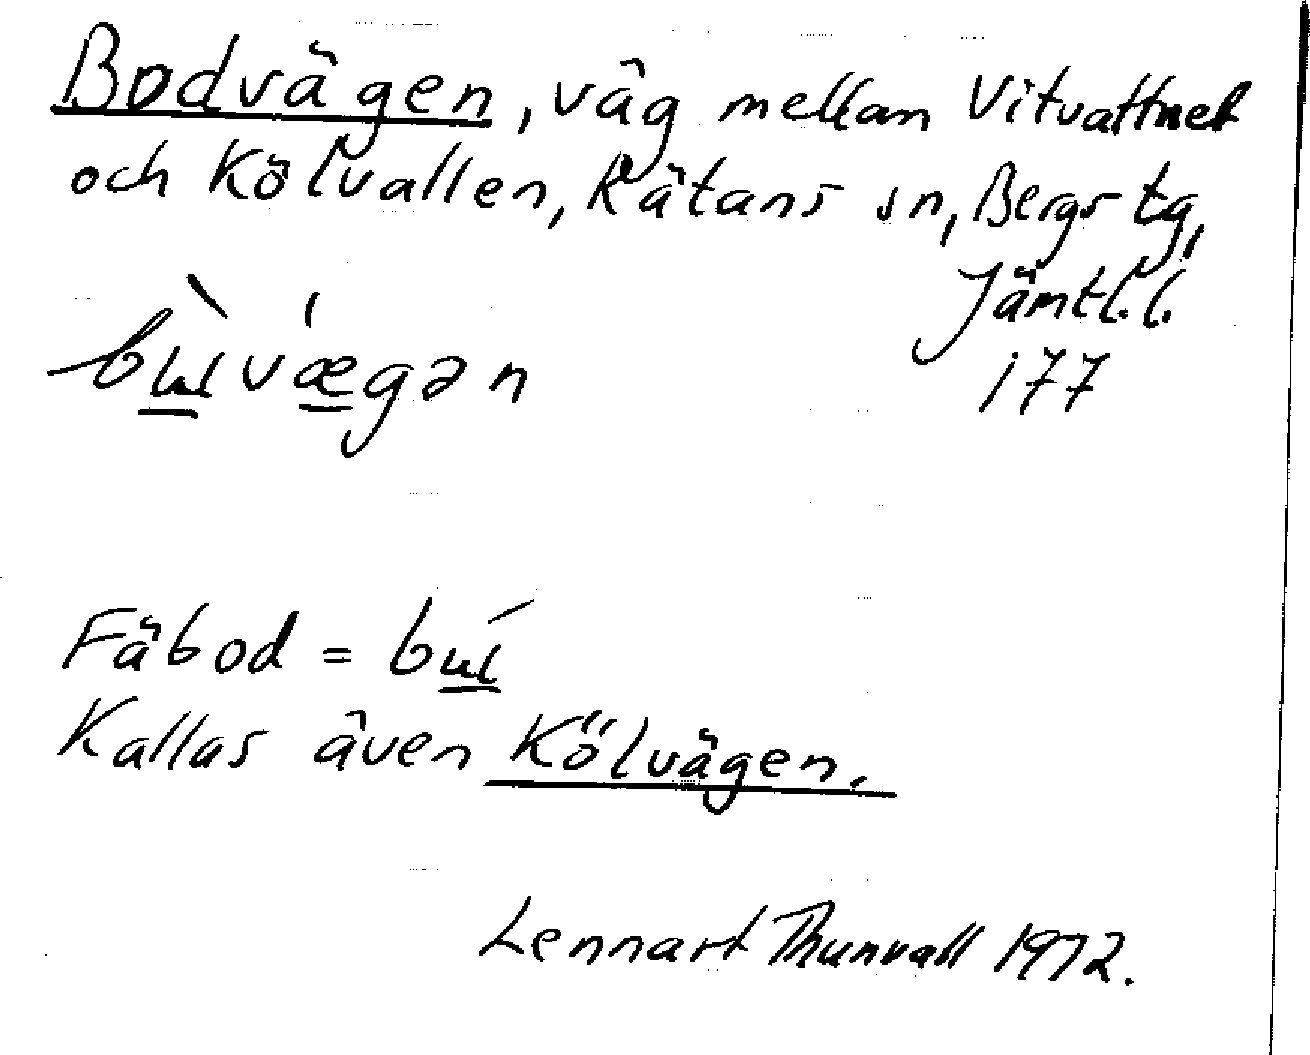 Bodvägen, väg mellan Vitvattnet
och Kölvallen, Rätans sn, Bergs tg,
Jämtl. l.
177
bɯ̲̀vǽ̲gən
Fäbod = bɯ̲́
Kallas även Kölvägen.
Lennart Thunvall 1972.